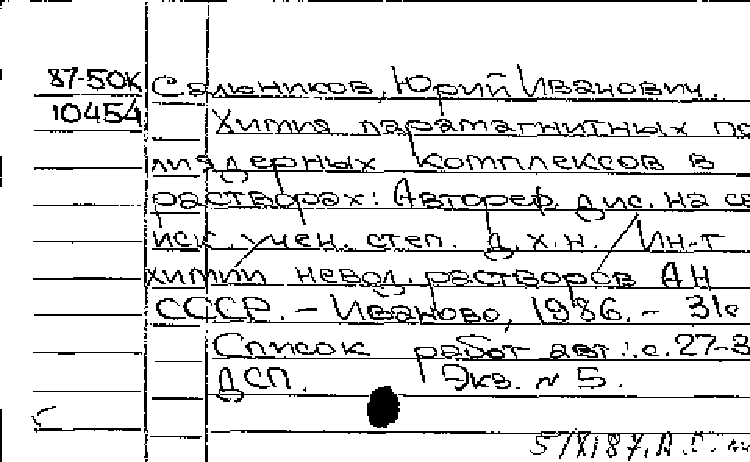 87-50К Сальников, Юрий Иванович.
10454 Химия парамагнитных по
лиядерных комплексов в
растворах: Автореф. дис. на со
иск. учен. степ. д.х.н. / Ин-т
химии невод. растворов АН
СССР. - Иваново, 1986. - 31с
Список работ авт.: с. 27-3
ДСП. Экз. № 5.
5/X 87.